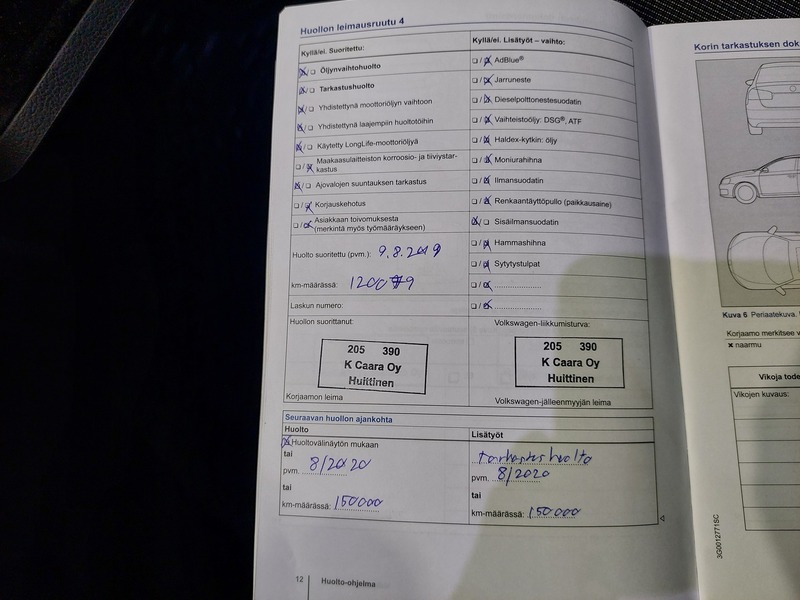 Huollon leimausruutu 4
Kyllä/ei. Suoritettu:
☒/☐ Öljynvaihtohuolto
☒/☐ Tarkastushuolto
☒/☐ Yhdistettynä moottoriöljyn vaihtoon
☒/☐ Yhdistettynä laajempiin huoltotöihin
☒/☐ Käytetty LongLife-moottoriöljyä
☐/☒ Maakaasulaitteiston korroosio- ja tiiviystar-
kastus
☒/☐ Ajovalojen suuntauksen tarkastus
☐/☒ Korjauskehotus
☐/☒ Asiakkaan toivomuksesta
(merkintä myös työmääräykseen)
Huolto suoritettu (pvm.): 9.8.2019
km-määrässä:
Laskun numero:
Huollon suorittanut:
205 390
K Caara Oy
Huittinen
Korjaamon leima
Kyllä/ei. Lisätyöt – vaihto:
☐/☒ AdBlue®
☐/☒ Jarruneste
☐/☒ Dieselpolttonestesuodatin
☐/☒ Vaihteistoöljy: DSG®, ATF
☐/☒ Haldex-kytkin: öljy
☐/☒ Moniurahihna
☐/☒ Ilmansuodatin
☐/☒ Renkaantäyttöpullo (paikkausaine)
☒/☐ Sisäilmansuodatin
☐/☒ Hammashihna
☐/☒ Sytytystulpat
☐/☒ ....................
☐/☒ ....................
Volkswagen-liikkumisturva:
205 390
K Caara Oy
Huittinen
Volkswagen-jälleenmyyjän leima
Seuraavan huollon ajankohta
Huolto
☒ Huoltovälinäytön mukaan
tai
pvm. 8/2020
tai
km-määrässä: 150000
Lisätyöt
tarkastushuolto
pvm. 8/2020
tai
km-määrässä: 150000
12 Huolto-ohjelma
Korin tarkastuksen dok
Kuva 6 Periaatekuva.
Korjaamo merkitsee v
✖ naarmu
Vikoja tode
Vikojen kuvaus:
3G0012771SC